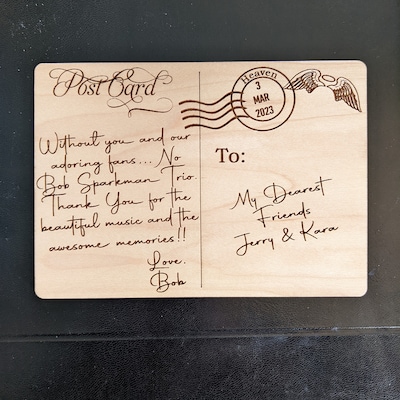 Post Card
Without you and our
adoring fans... No
Bob Sparkman Trio.
Thank You for the
beautiful music and the
awesome memories!!
Love,
Bob
Heaven
3
MAR
2023
To:
My Dearest
Friends
Jerry & Kara